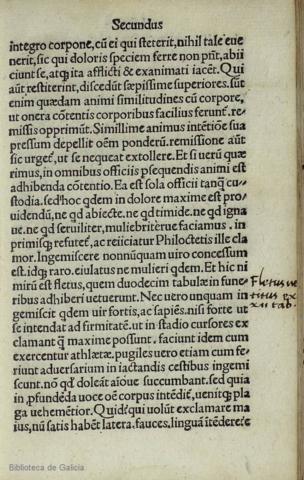 Secundus
integro corpore, cū ei qui steterit, nihil tale eue
nerit, sic qui doloris speciem ferre nō pn̄t, abii
ciunt se, atq; ita afflicti & exanimati iacēt. Qui
aūt restiterint, discedūt sæpissime superiores. sūt
enim quædam animi similitudines cū corpore,
ut onera cōtentis corporibus facilius ferunt. re-
missis opprimūt. Simillime animus intētiōe sua
pressum depellit oēm ponderū. remissiōe aūt
sic urget, ut se nequeat extollere. Et si uerū quæ
rimus, in omnibus officiis psequendis animi est
adhibenda cōtentio. Ea est sola officii tanq̄ cu-
stodia. sed hoc qdem in dolore maxime est pro-
uidendū, ne qd abiecte. ne qd timide. ne qd igna
ue. ne qd seruiliter, muliebriterue faciamus. in
primisq; refutet, ac reiiciatur Philoctetis ille cla
mor. Ingemiscere nonnūquam uiro concessum
est. idq; raro. eiulatus ne mulieri qdem. Et hic ni
mirū est fletus, quem duodecim tabulæ in fune-
ribus adhiberi uetuerunt. Nec uero unquam in
gemiscit qdem uir fortis, ac sapiēs. nisi forte ut
se intendat ad firmitatē. ut in stadio cursores ex
clamant q̄ maxime possunt. faciunt idem cum
exercentur athlætæ. pugiles uero etiam cum fe-
riunt aduersarium in iactandis cestibus ingemi
scunt. nō qd doleāt aīoue succumbant. sed quia
in pfundēda uoce oē corpus intēdit, uenitq; pla
ga uehemētior. Quid? qui uolūt exclamare ma
ius, nū satis habēt latera. fauces. linguā ītēdere
Fletus ve
titus ex
xii tab.
Biblioteca de Galicia